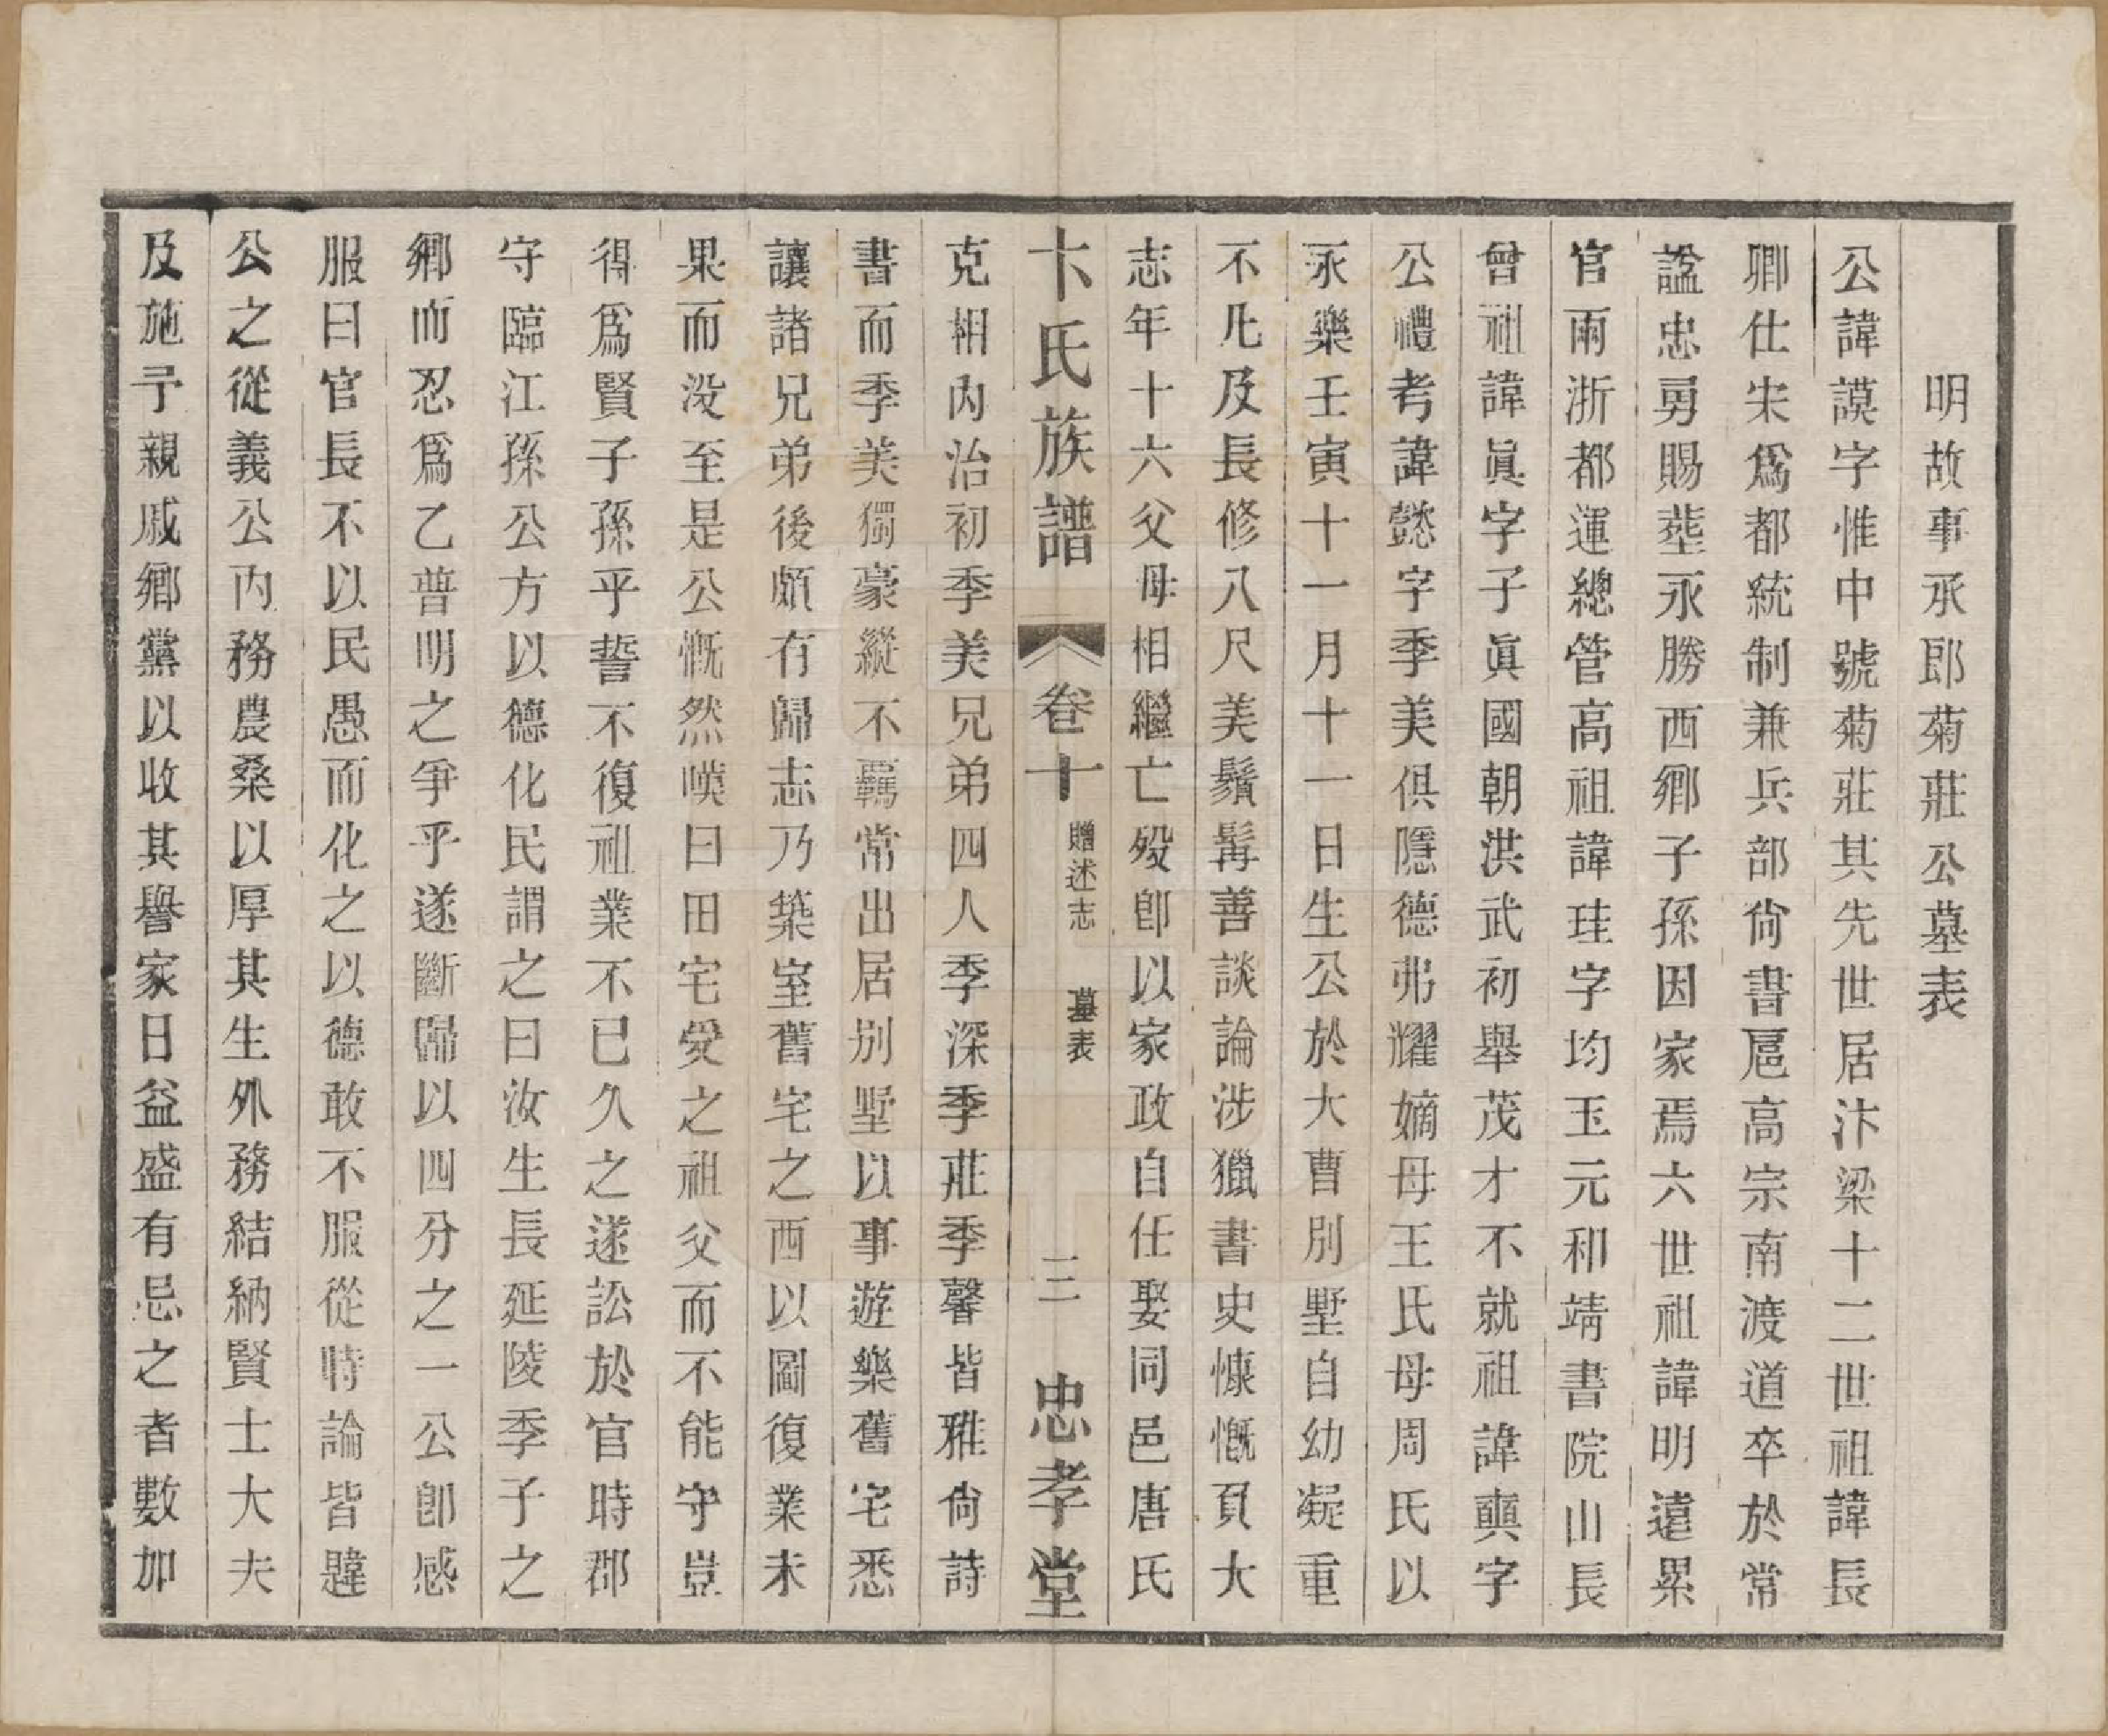 明故事承郎菊莊公墓表
公諱謨字惟中號菊莊其先世居汴梁十二世祖諱長
卿仕宋爲都統制兼兵部尙書扈高宗南渡道卒於常
諡忠勇賜塟永勝西鄉子孫因家焉六世祖諱明遠累
官兩浙都運總管高祖諱珪字均玉元和靖書院山長
曾祖諱眞字子眞國朝洪武初舉茂才不就祖諱輿字
公禮考諱懿字季美俱隱德弗耀嫡母王氏母周氏以
永樂壬寅十一月十一日生公於大曹別墅自幼凝重
不凡及長修八尺美鬚髯善談論涉獵書史慷慨負大
志年十六父母相繼亡歿卽以家政自任娶同邑唐氏
卞氏族譜 卷十 贈述志 墓表 三 忠孝堂
克相內治初季美兄弟四人季深季莊季馨皆雅尙詩
書而季美獨豪縱不羈常出居別墅以事遊樂舊宅悉
讓諸兄弟後頗有歸志乃築室舊宅之西以圖復業未
果而沒至是公慨然嘆曰田宅受之祖父而不能守豈
得爲賢子孫乎誓不復祖業不已久之遂訟於官時郡
守臨江孫公方以德化民謂之曰汝生長延陵季子之
鄉而忍爲乙普明之爭乎遂斷歸以四分之一公卽感
服曰官長不以民愚而化之以德敢不服從時論皆韙
公之從義公內務農桑以厚其生外務結納賢士大夫
及施予親戚鄉黨以收其譽家日益盛有忌之者數加